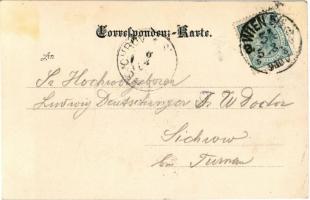 Correspondenz-Karte.
An
Sr Hochwolgeboren
Ludwig Deutschinger Doctor
Sichrow
bei Turnau
WIEN